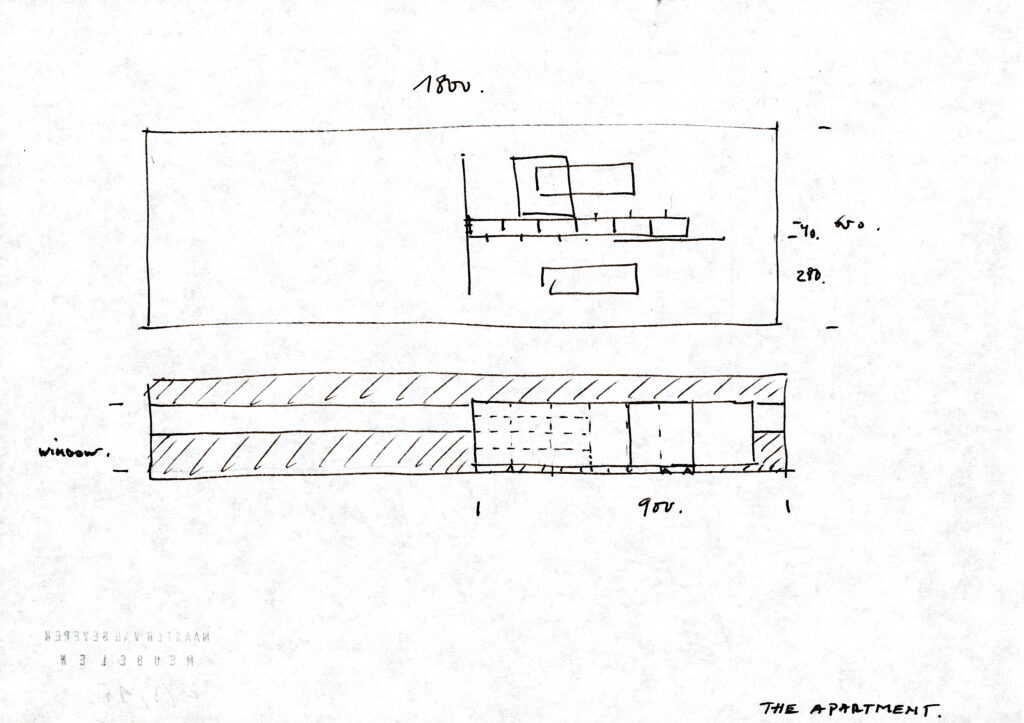 1800.
40. 600.
280.
WINDOW.
900.
MAARTEN VAN SEVEREN
MEUBELEN
THE APARTMENT.